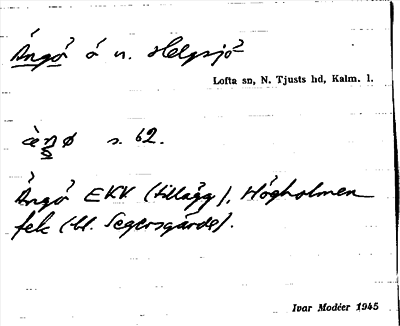 Ängö ö n. Helgsjö
Lofta sn, N. Tjusts hd, Kalm. l.
s. 62.
Ängö EKK (tillägg), Högholmen
fek (bl. Segersgärde).
Ivar Modéer 1945